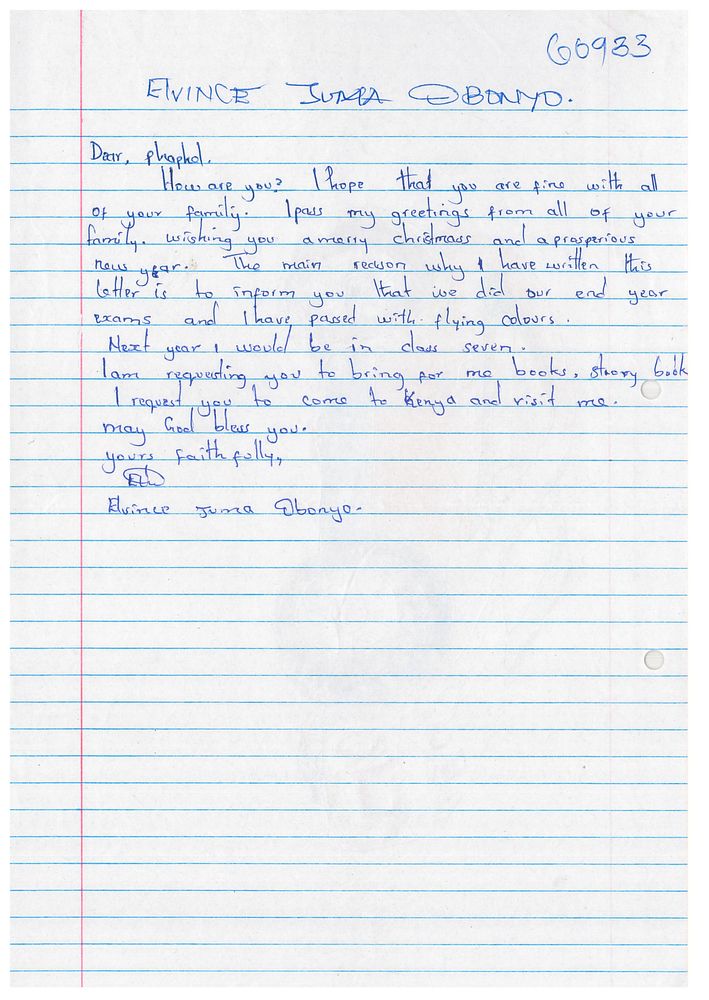 60933
ELVINCE JUMA OBONYO.
Dear, phaphol.
How are you? I hope that you are fine with all
of your family. I pass my greetings from all of your
family. wishing you a merry christmass and a prosperious
new year. The main reason why I have written this
letter is to inform you that we did our end year
exams and I have passed with flying colours.
Next year I would be in class seven.
I am requesting you to bring for me books, strory book
I request you to come to Kenya and visit me.
may God bless you.
yours faithfully,
Elvince Juma Obonyo.